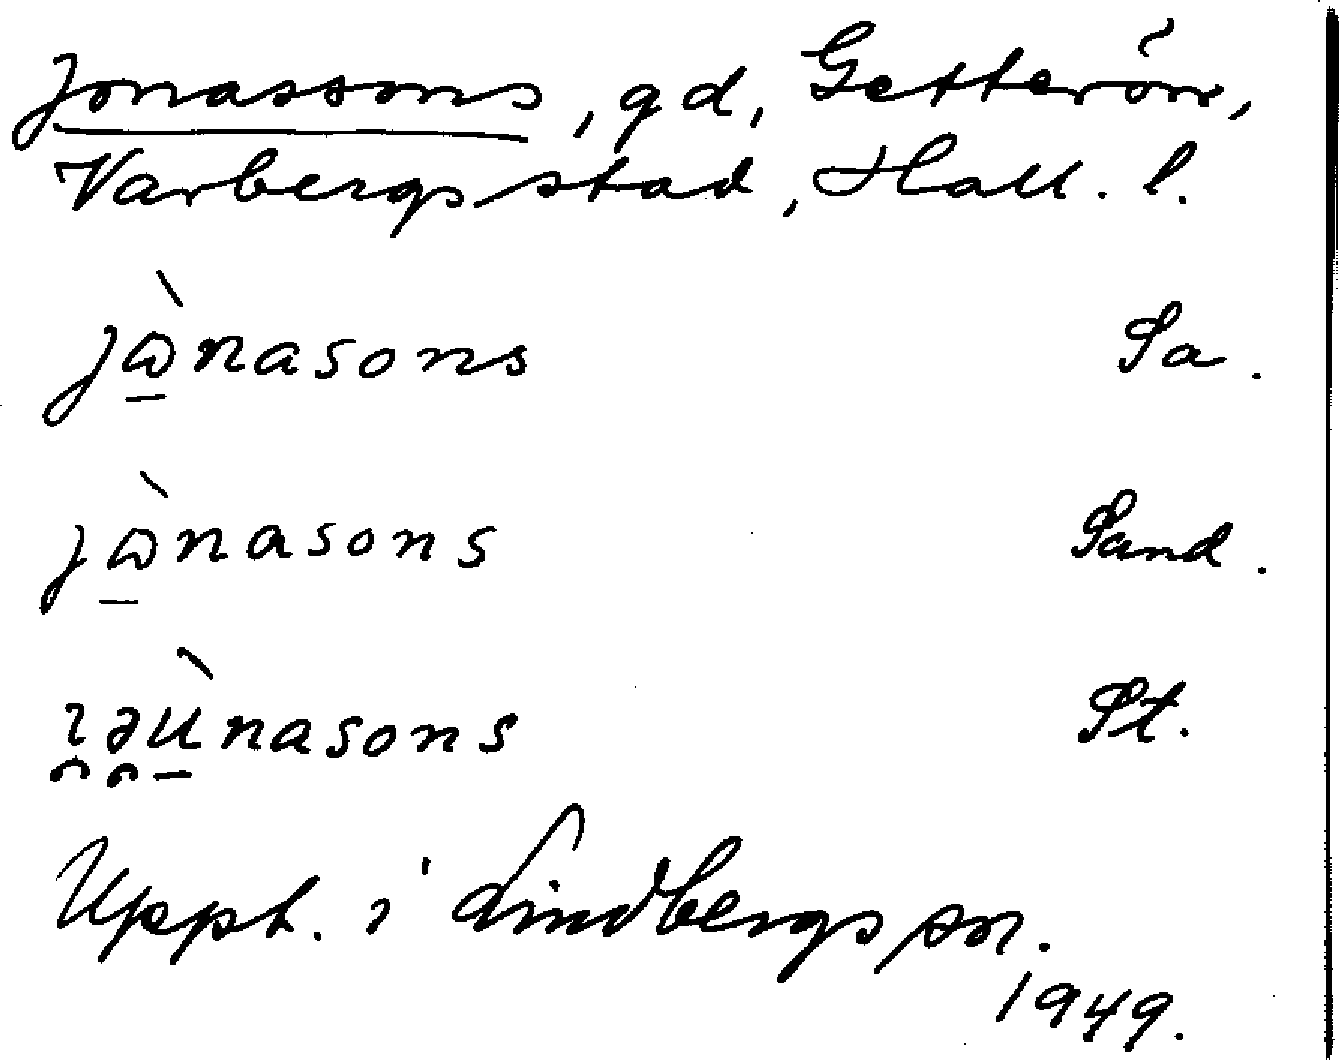 Jonassons, gd, Getterön,
Varbergs stad, Hall. l.
jɷ̀nasons Sa.
jɷ̀nasons Sand.
ɩ̯ə̯ùnasons St.
Uppt. i Lindbergs sn.
1949.